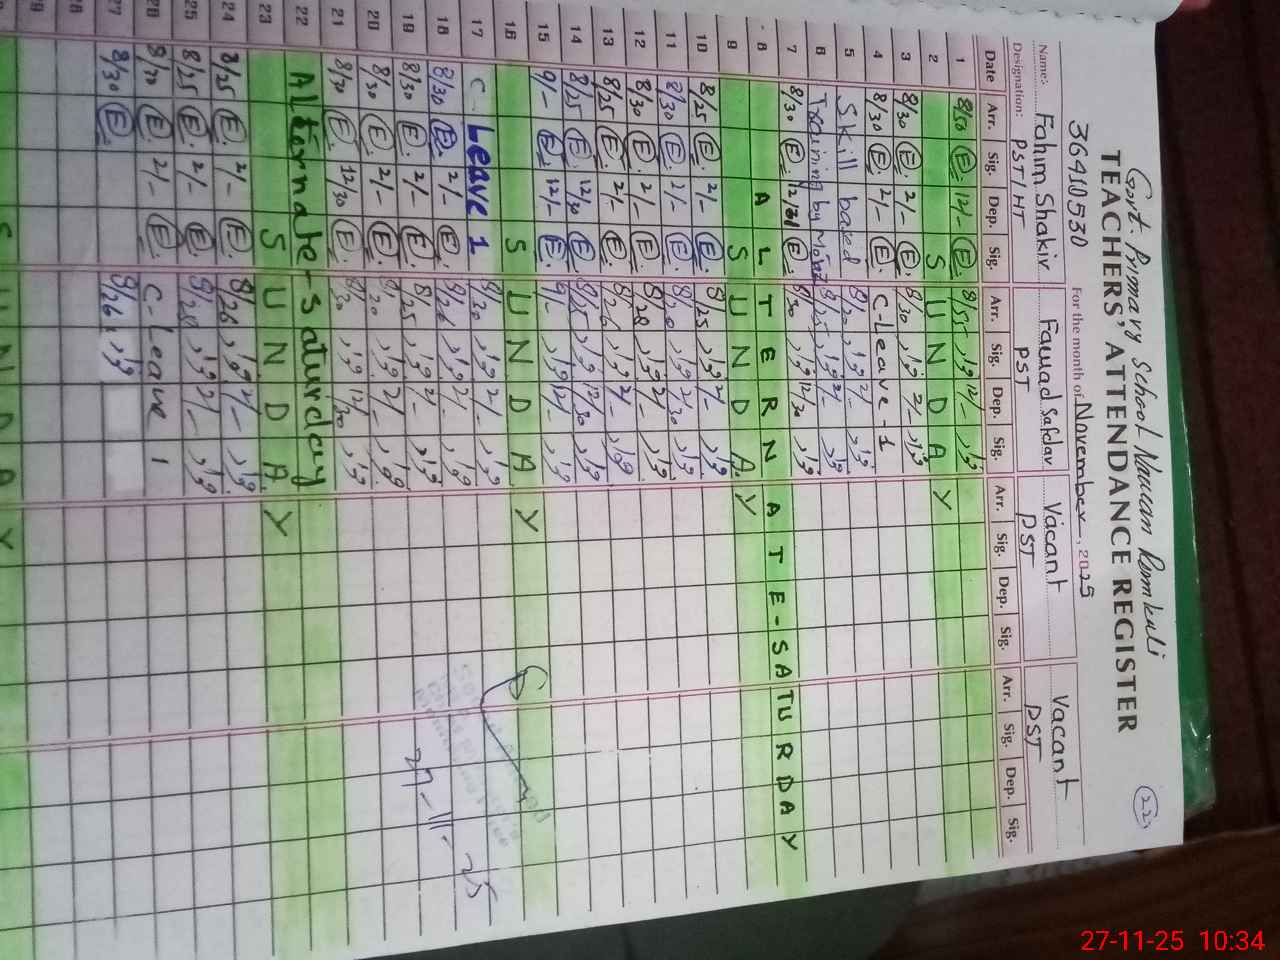 Govt. Primary School
36410530
TEACHERS' ATTENDANCE REGISTER
For the month of November, 2025
Name: Fahim Shakir Fawad Safdar Vacant Vacant
Designation: PST/HT PST PST PST
Date Arr. Sig. Dep. Sig. Arr. Sig. Dep. Sig. Arr. Sig. Dep. Sig. Arr. Sig. Dep. Sig.
1 8/50 E 12/- E 8/55 12/-
2 SUNDAY
3 8/30 E 2/- E 8/30 2/-
4 8/30 E 2/- E C-Leave-1
5 Skill based 8/20 2/-
6 Training by 8/25 2/-
7 8/30 E E 8/30 12/30
8 ALTERNATE-SATURDAY
9 SUNDAY
10 8/25 E 2/- E 8/25 2/-
11 8/30 E 2/- E 2/30
12 8/30 E 2/- E 8/28 2/-
13 8/25 E 2/- E 8/26 2/-
14 8/25 E 12/30 E 8/25 12/30
15 9/- E 12/- E 9/- 12/-
16 SUNDAY
17 C. Leave 1 8/20 2/-
18 8/30 E 2/- E 8/26 2/-
19 8/30 E 2/- E 8/25 2/-
20 8/30 E 2/- E 8/20 2/-
21 8/30 E 12/30 E 8/30 12/30
22 Alternate-saturday
23 SUNDAY
24 8/25 E 2/- E 8/26 2/-
25 8/25 E 2/- E 8/28 2/-
26 8/30 E 2/- E C-Leave 1
27 8/30 E 8/26
28
29
27-11-25
27-11-25 10:34